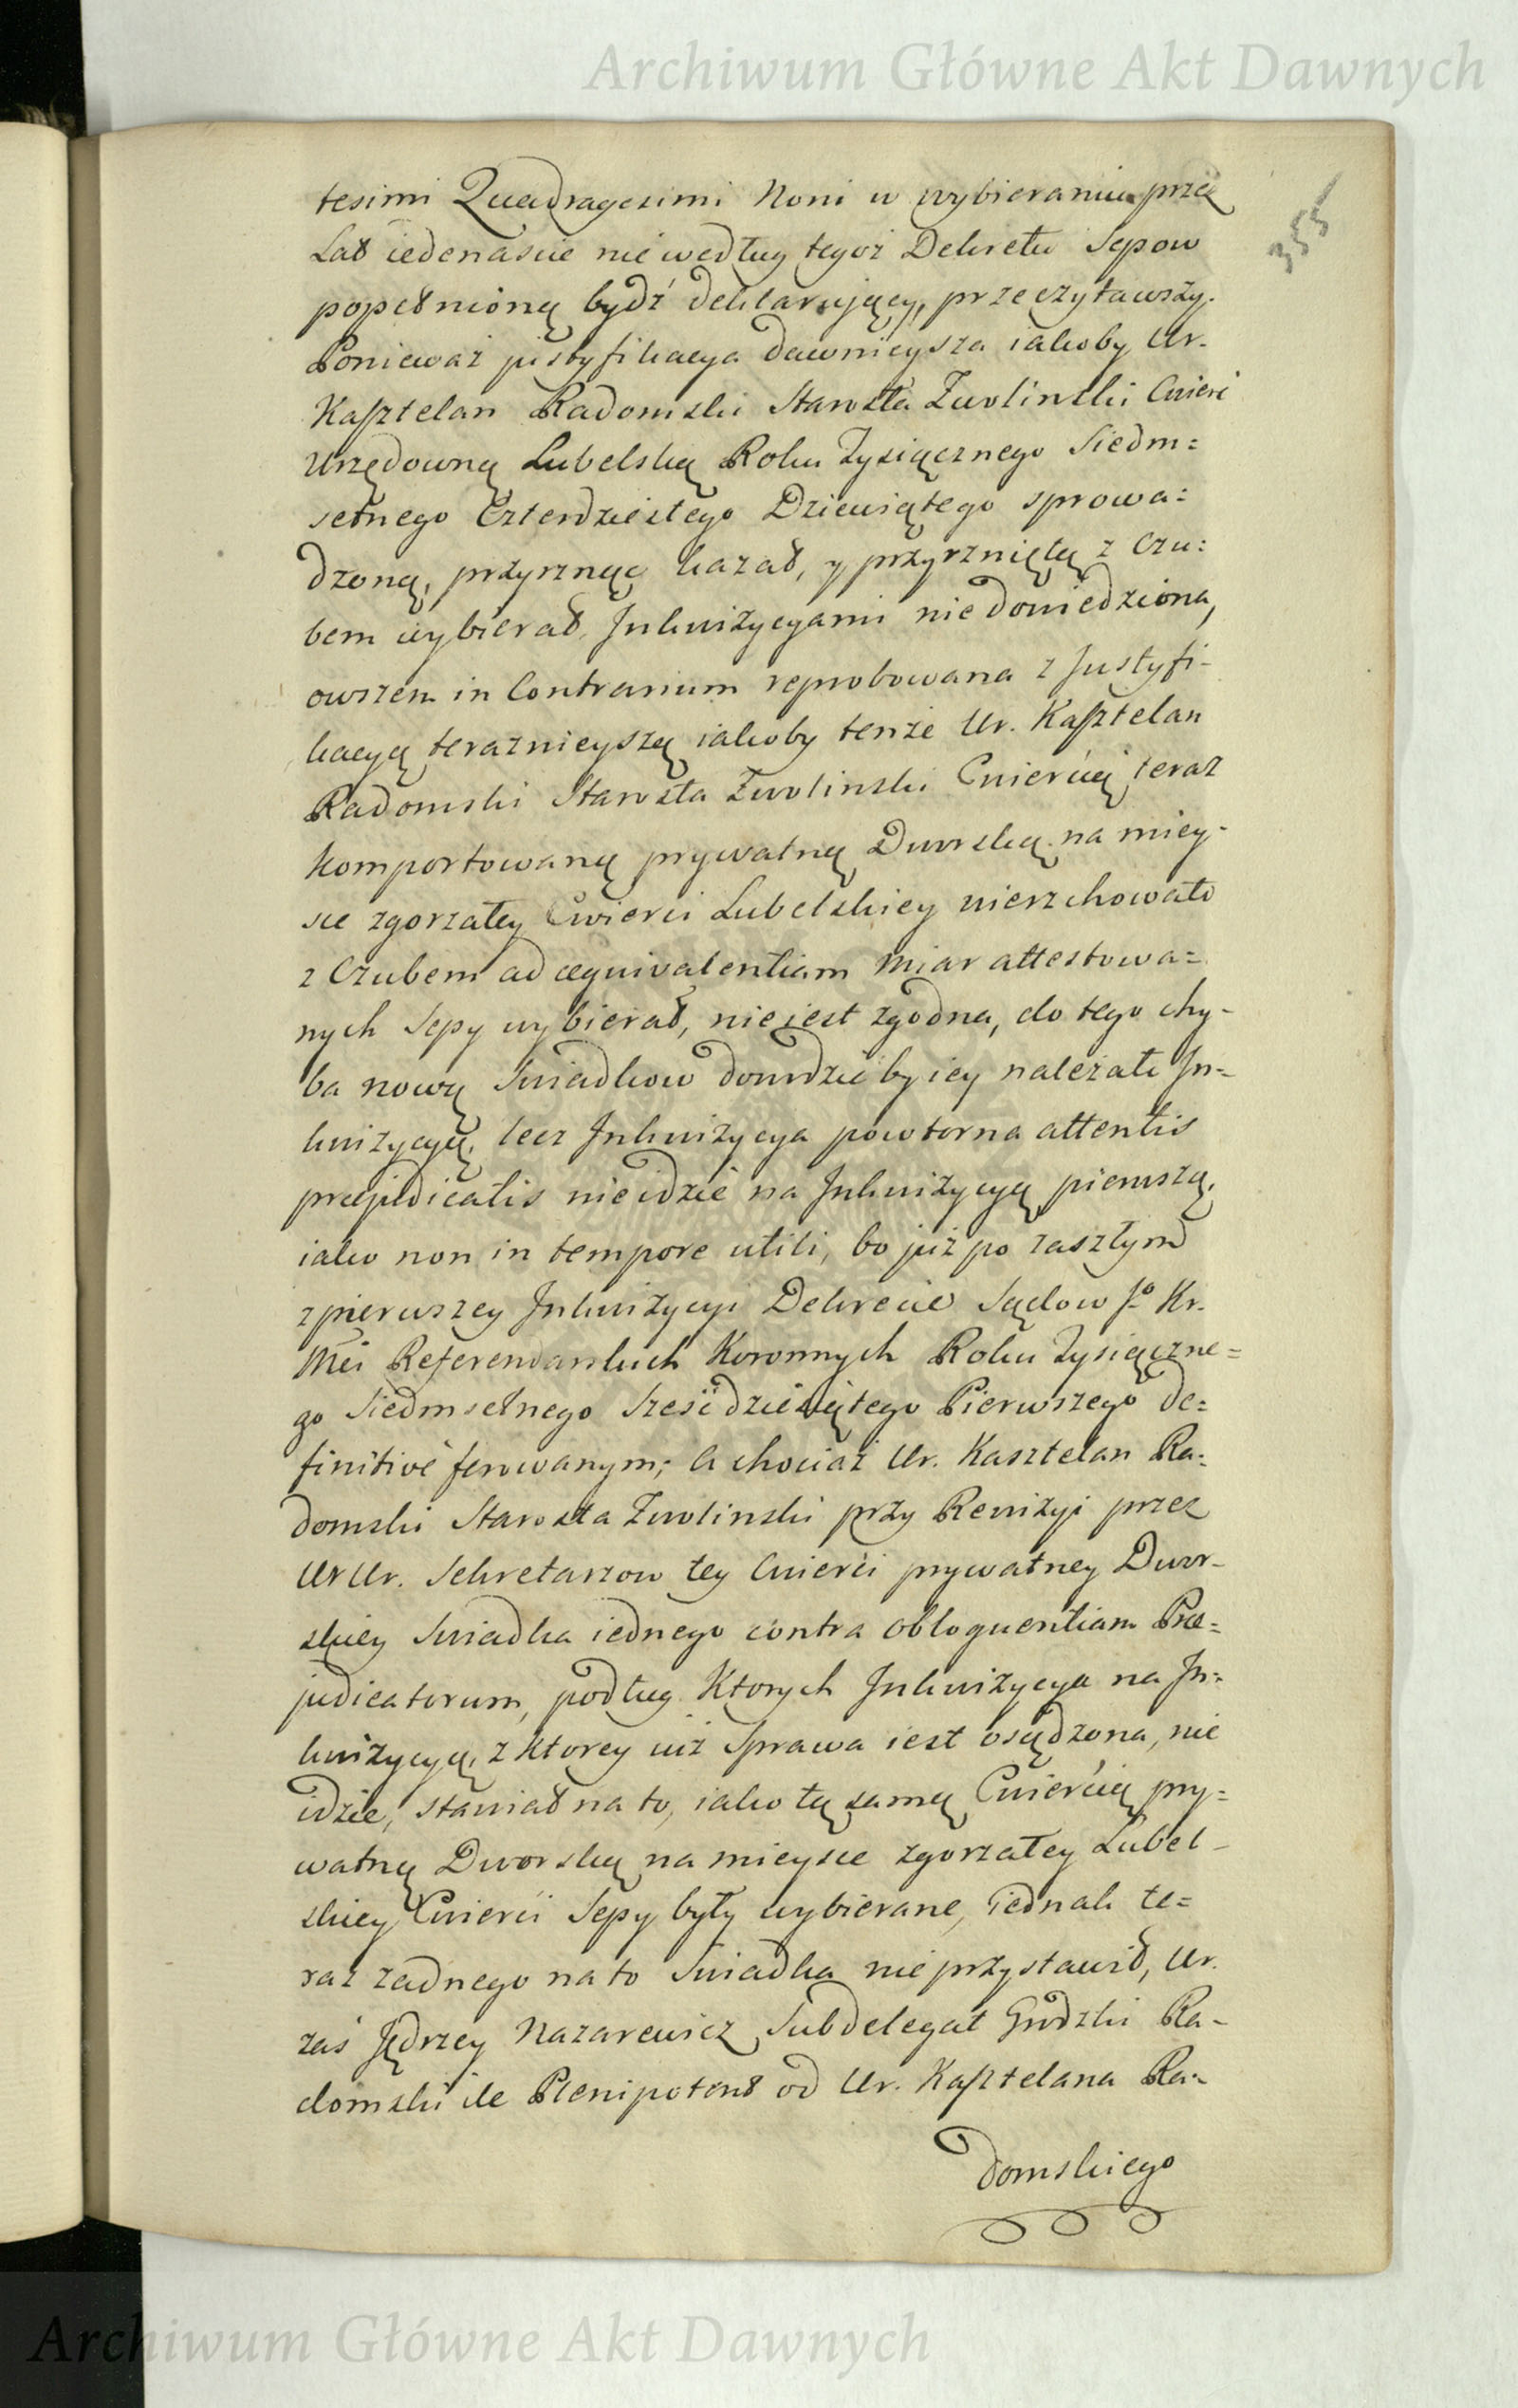 Archiwum Główne Akt Dawnych
355
tesimi Quadragesimi Noni w wybieraniu przez
Lat iedenascie nie według tegoż Dekretu Sepow
popełnioną bydź deklarującey, przeczytawszy.
Ponieważ justyfikacya dawnieysza iakoby Ur.
Kasztelan Radomski Starosta Zwolinski Cwierć
Urzędowną Lubelską Roku Tysiącznego Siedm=
setnego Czterdziestego Dziewiątego sprowa=
dzoną, przyrznąć kazał, y przyrzniętą z Czu=
bem wybierał, Inkwizycyami nie dowiedziona,
owszem in Contrarium reprobowana z Justyfi-
kacyą teraznieyszą iakoby tenże Ur. Kasztelan
Radomski Starosta Zwolinski Cwiercią teraz
komportowaną prywatną Dworską na miey-
sce zgorzałey Cwierci Lubelskiey wierzchowato
z Czubem ad æquivalentiam miar attestowa=
nych Sepy wybierał, nie iest zgodna, do tego chy-
ba nową Swiadkow dowodzić by iey należało In=
kwizycyą, lecz Inkwizycya powtorna attentis
præjudicatis nie idzie na Inkwizycyą pierwszą,
iako non in tempore utili, bo już po zaszłym
z pierwszey Inkwizycyi Dekrecie Sądow Jo Kr.
Mci Referendarskich Koronnych Roku Tysiączne=
go Siedmsetnego Sześćdziesiątego Pierwszego de=
finitivè ferowanym; A chociaż Ur. Kasztelan Ra=
domski Starosta Zwolinski przy Rewizyi przez
Ur Ur. Sekretarzow tey Cwierci prywatney Dwor-
skiey Swiadka iednego contra obloquentiam Præ=
judicatorum, podług Ktorych Inkwizycya na In=
kwizycyą, z Ktorey iuż Sprawa iest osądzona, nie
idzie, stawiał na to, iako tą samą Cwiercią pry=
watną Dworską na mieysce zgorzałey Lubel-
skiey Cwierci Sepy były wybierane, iednak te=
raz zadnego na to Swiadka nie przystawił, Ur.
zaś Jędrzey Nazarewicz Subdelegat Grodzki Ra-
domski ile Plenipotent od Ur. Kasztelana Ra-
domskiego
Archiwum Główne Akt Dawnych